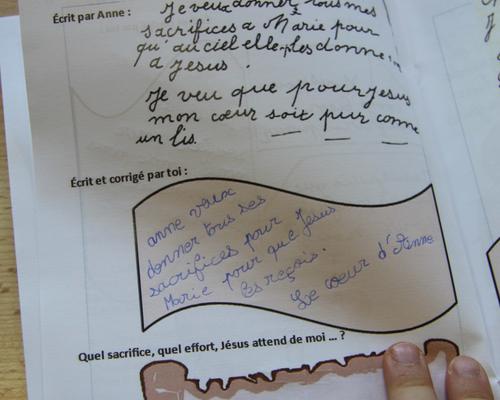 Écrit par Anne :
Je veux donner tous mes
sacrifices a Marie pour
qu'au ciel elle les donne
a Jesus.
Je veu que pour Jesus
mon cœur soit pur come
un lis.
Écrit et corrigé par toi :
anne veux
donner tous ses
sacrifices pour
Marie pour que Jesus
les reçois.
Le coeur d'Anne
Quel sacrifice, quel effort, Jésus attend de moi ... ?